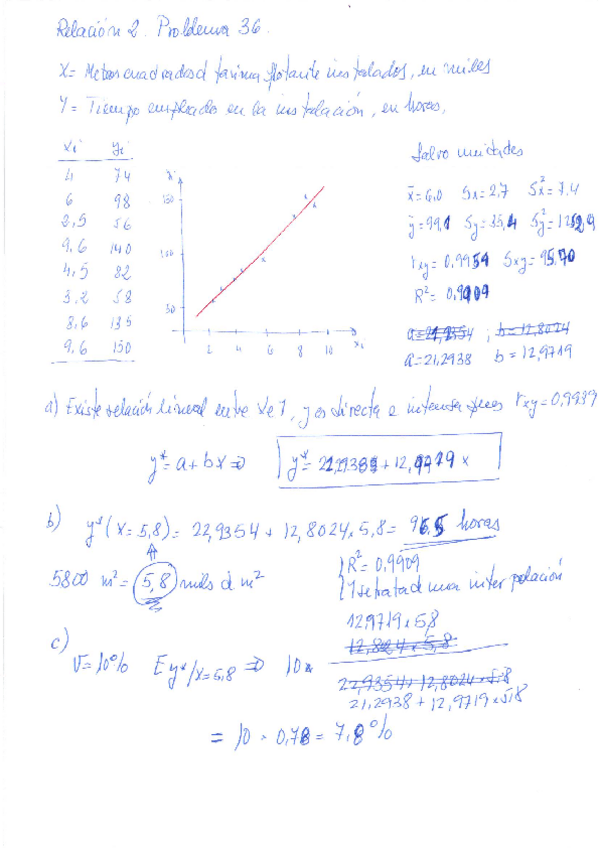 Relación 2. Problema 36.
X = Metros cuadrados d tarima flotante instalados, en miles
Y = Tiempo empleado en la instalación, en horas.
xi yi
4 74
6 98
2,5 56
9,6 140
4,5 82
3,2 58
8,6 135
9,6 150
150
100
50
2 4 6 8 10 xi
Salvo unidades
x̄ = 6,0 Sx = 2,7 Sx² = 7.4
ȳ = 99,1 Sy = 35,4 Sy² =
rxy = 0,9954 Sxy = 95,70
R² = 0,9909
a = 21,2938 b = 12,9719
a) Existe relación lineal entre X e Y, y es directa e intensa pues rxy = 0,9939
y* = a + bx ⇒ y* = x
b) y*(x = 5,8) = 22,9354 + 12,8024 · 5,8 = 96,5 horas
5800 m² = 5,8 miles d m²
R² = 0,9909
Y se trata d una interpolación
c) V = 10% E y*/x=5,8 ⇒ 10 ×
12,9719 × 5,8
12,8024 × 5,8
22,9354 + 12,8024 × 5,8
21,2938 + 12,9719 × 5,8
= 10 · 0,78 = 7,8%